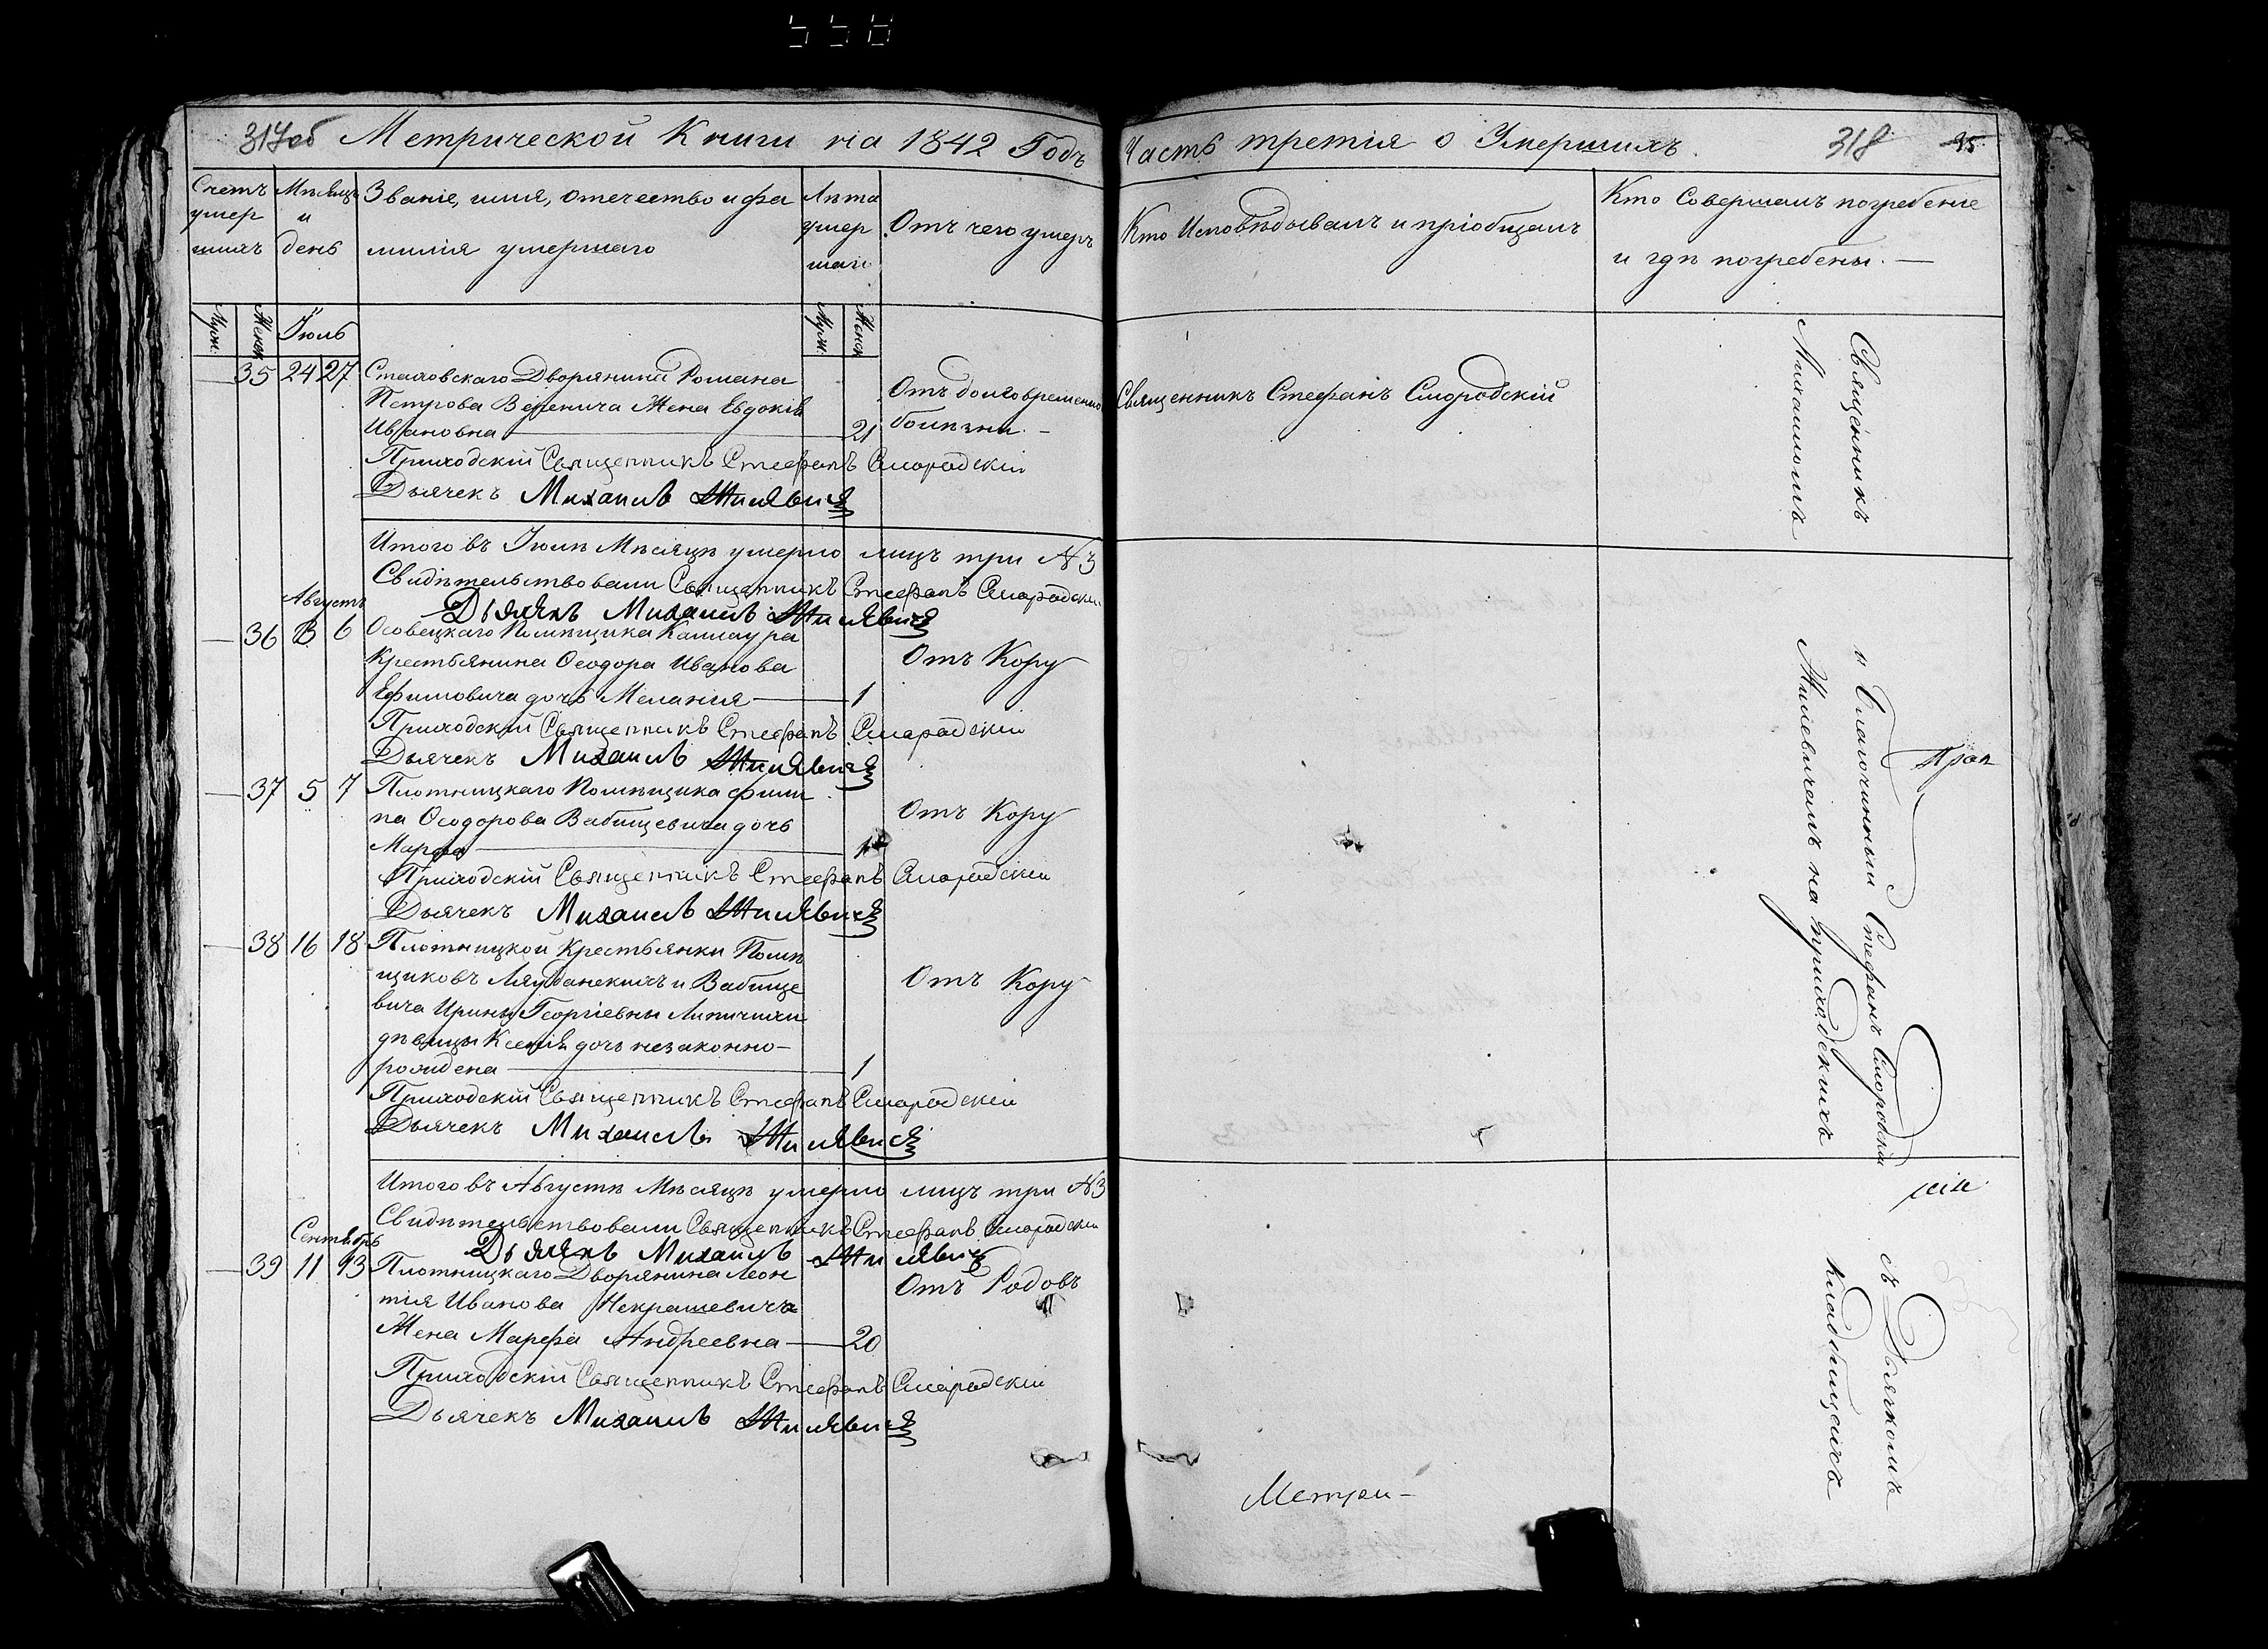 558
317об Метрической Книги на 1842 Годъ
Счетъ умер шихъ
Мѣсяцъ и день
Званіе, имя, отечество и фа
милія умершаго
Лѣта умер шаго
Отъ чего умеръ
Муж. Женск. Іюль
Муж. Женск.
35 24 27 Стаховскаго Дворянина Романа
Петрова Веренича Жена Евдокія
Ивановна 21
Отъ долговременно
болѣзни. –
Приходскій Священникъ Стефанъ Смородскій
Дьячекъ Михаилъ Жилѣвич
Итого въ Іюлѣ Мѣсяцѣ умерло лицъ три №3
Свидѣтельствовали Священникъ Стефанъ Смородскій
Дьячекъ Михаилъ Жилѣвич
Августъ
36 3 6 Осовецкаго Помѣщика Каллаура
Крестьянина Ѳеодора Иванова
Ефимовича дочь Меланія 1
Отъ Кору
Приходскій Священникъ Стефанъ Смородскій
Дьячекъ Михаилъ Жилѣвич
37 5 7 Плотницкаго Помѣщика Фили
па Ѳеодорова Вабищевича дочь
Марфа 1
Отъ Кору
Приходскій Священникъ Стефанъ Смородскій
Дьячекъ Михаилъ Жилѣвич
38 16 18 Плотницкой Крестьянки Помѣ
щиковъ и Вабище
вича Ирины Георгіевны
дѣвицы Ксенія дочь незаконно–
рождена 1
Отъ Кору
Приходскій Священникъ Стефанъ Смородскій
Дьячекъ Михаилъ Жилѣвич
Итого въ Августѣ Мѣсяцѣ умерло лицъ три №3
Свидѣтельствовали Священникъ Стефанъ Смородскій
Дьячекъ Михаилъ Жилѣвич
Сентябрь
39 11 13 Плотницкаго Дворянина Леон
тія Иванова Некрашевича
Жена Марфа Андреевна 20
Отъ Родовъ
Приходскій Священникъ Стефанъ Смородскій
Дьячекъ Михаилъ Жилѣвич
Часть третія о Умершихъ. 318 95
Кто Исповѣдывалъ и пріобщалъ
Кто Совершалъ погребеніе
и гдѣ погребены. —
Священникъ Стефанъ Смородскій
Священникъ и Благочинный Стефанъ Смородскій съ Дьячкомъ
Михаиломъ Жилевичемъ на приходскихъ кладбищахъ
Метри–